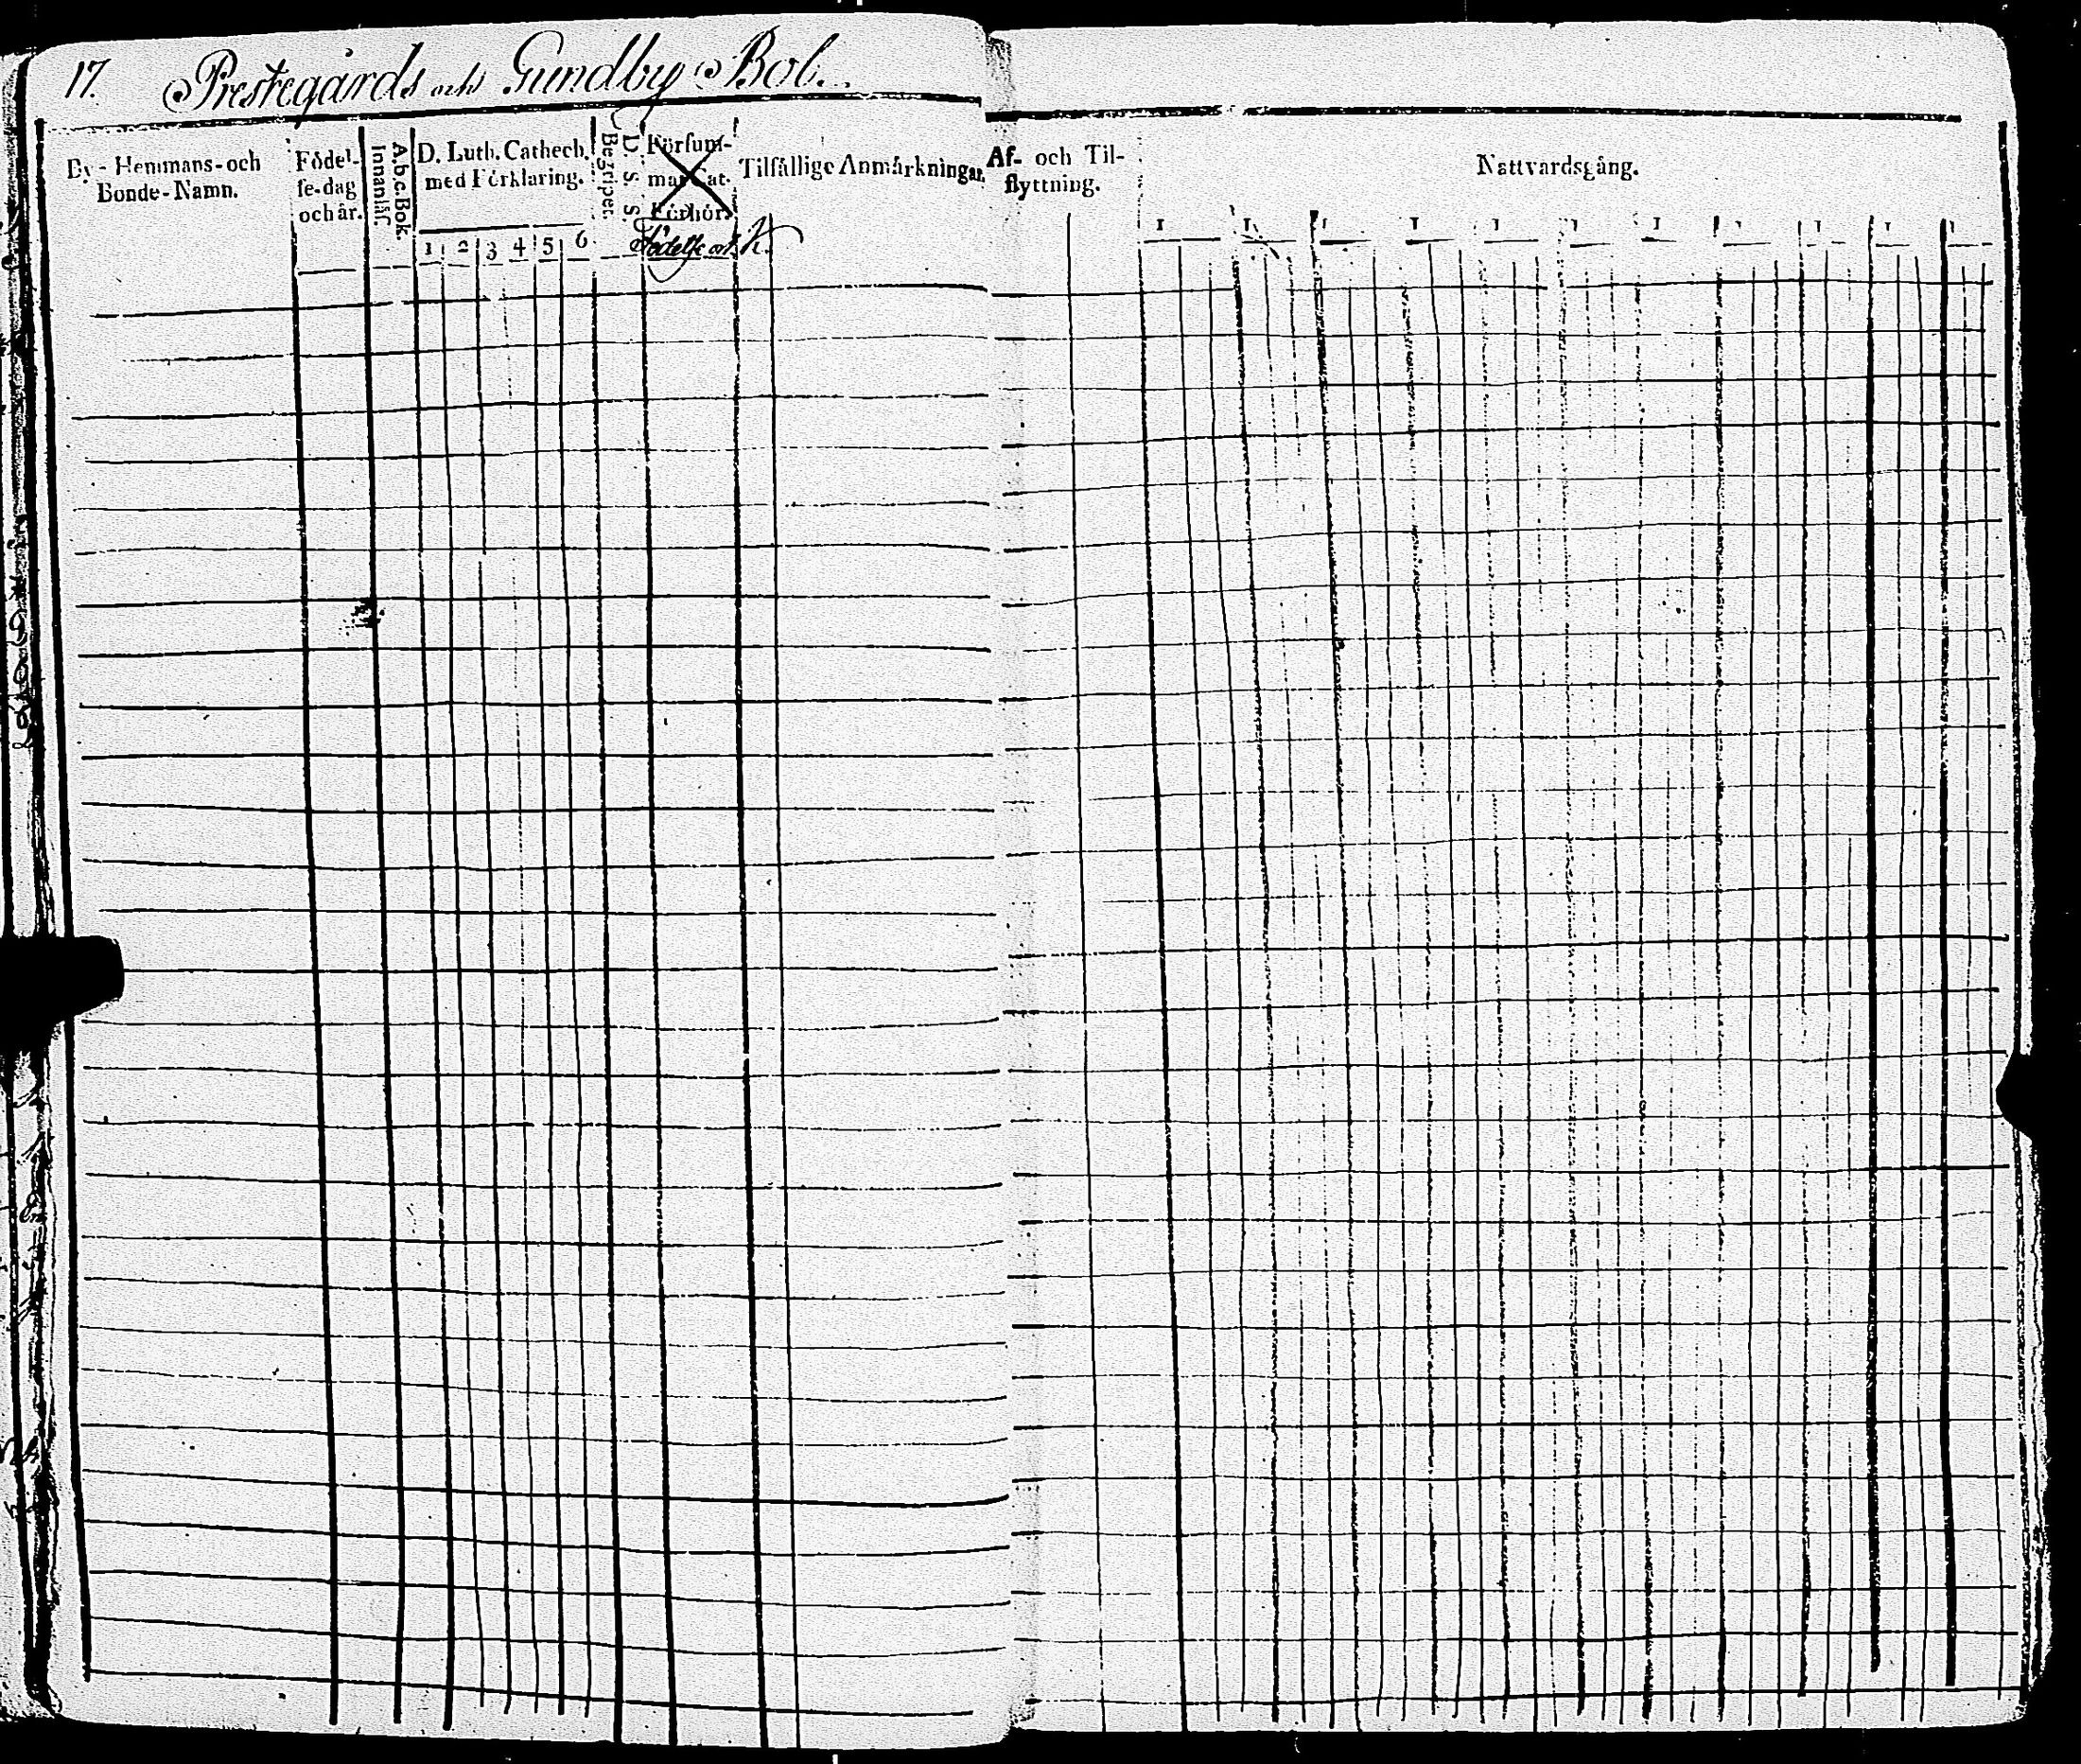 17. Prestegårds och Gundby Bol.
By-Hemmans-och
Bonde-Namn.
Födel-
se-dag
och år.
A.b.c.Bok.
Innanläs.
D. Luth. Cathech.
med Förklaring.
1 2 3 4 5 6
D. S. S.
Begriper.
Försum-
mat Cat.
Förhör.
Födelse ort.
Tilfällige Anmärkningar.
Af- och Til-
flyttning.
Nattvardsgång.
1 1 1 1 1 1 1 1 1 1 1